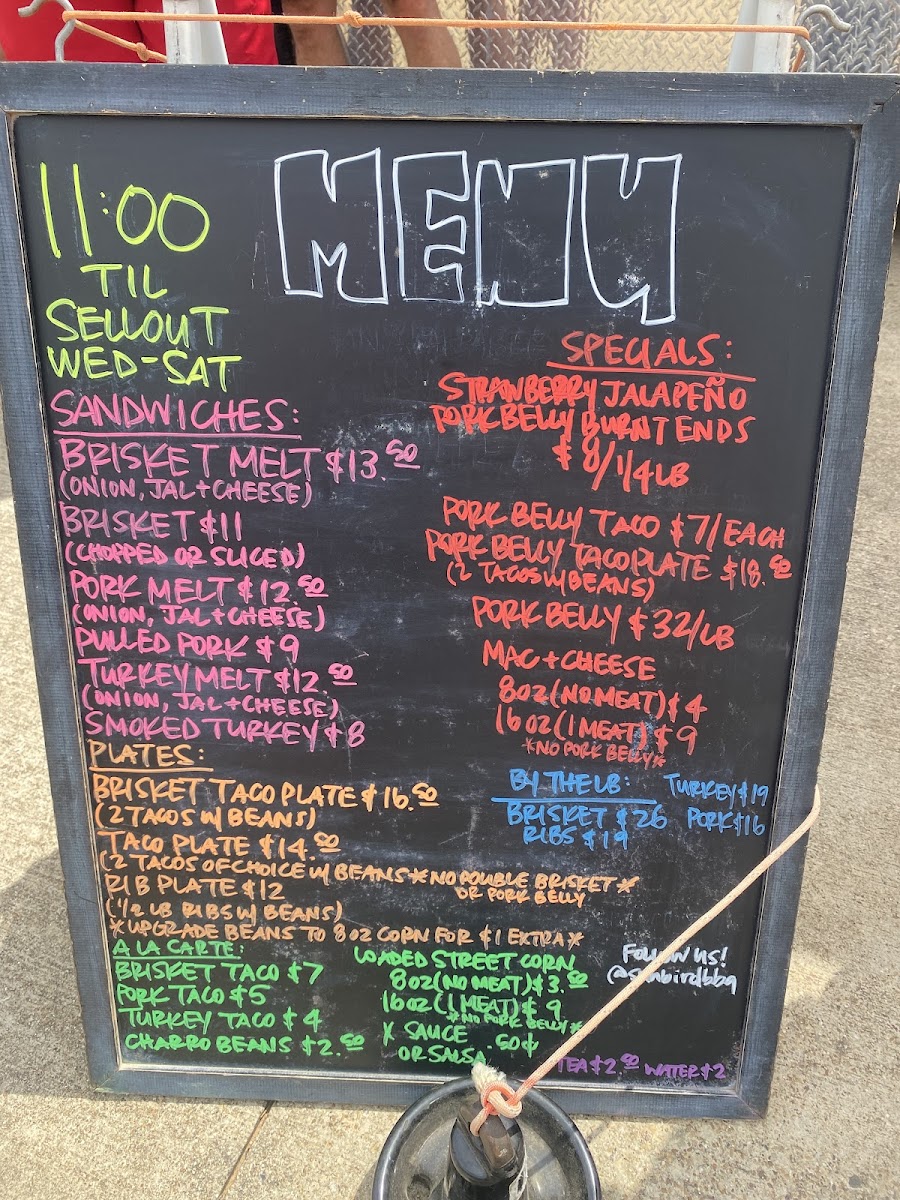 MENU
11:00
TIL
SELLOUT
WED-SAT
SANDWICHES:
BRISKET MELT $13.50
(ONION, JAL + CHEESE)
BRISKET $11
(CHOPPED OR SLICED)
PORK MELT $12.50
(ONION, JAL + CHEESE)
PULLED PORK $9
TURKEY MELT $12.50
(ONION, JAL + CHEESE)
SMOKED TURKEY $8
SPECIALS:
STRAWBERRY JALAPEÑO
PORK BELLY BURNT ENDS
$8/1/4LB
PORK BELLY TACO $7/EACH
PORK BELLY TACO PLATE $18.50
(2 TACOS W/BEANS)
PORK BELLY $32/LB
MAC + CHEESE
8oz (NO MEAT) $4
16oz (1 MEAT) $9
*NO PORK BELLY*
BY THE LB: TURKEY $19
BRISKET $26 PORK $16
RIBS $19
PLATES:
BRISKET TACO PLATE $16.50
(2 TACOS W/ BEANS)
TACO PLATE $14.50
(2 TACOS OF CHOICE W/ BEANS *NO DOUBLE BRISKET*
OR PORK BELLY
RIB PLATE $12
(1/2 LB RIBS W/ BEANS)
*UPGRADE BEANS TO 8oz CORN FOR $1 EXTRA*
A LA CARTE:
BRISKET TACO $7
PORK TACO $5
TURKEY TACO $4
CHARRO BEANS $2.50
LOADED STREET CORN
8oz (NO MEAT) $3.50
16oz (1 MEAT) $9
*NO PORK BELLY*
X SAUCE .50¢
OR SALSA
FOLLOW US!
@sunbirdbbq
TEA $2.50 WATER $2